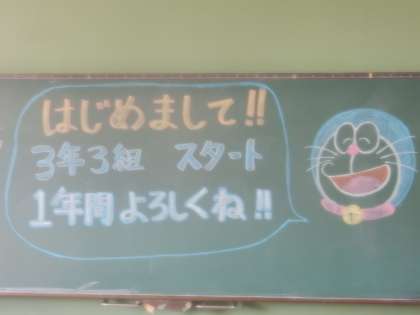 はじめまして!!
3年3組 スタート
1年間よろしくね!!